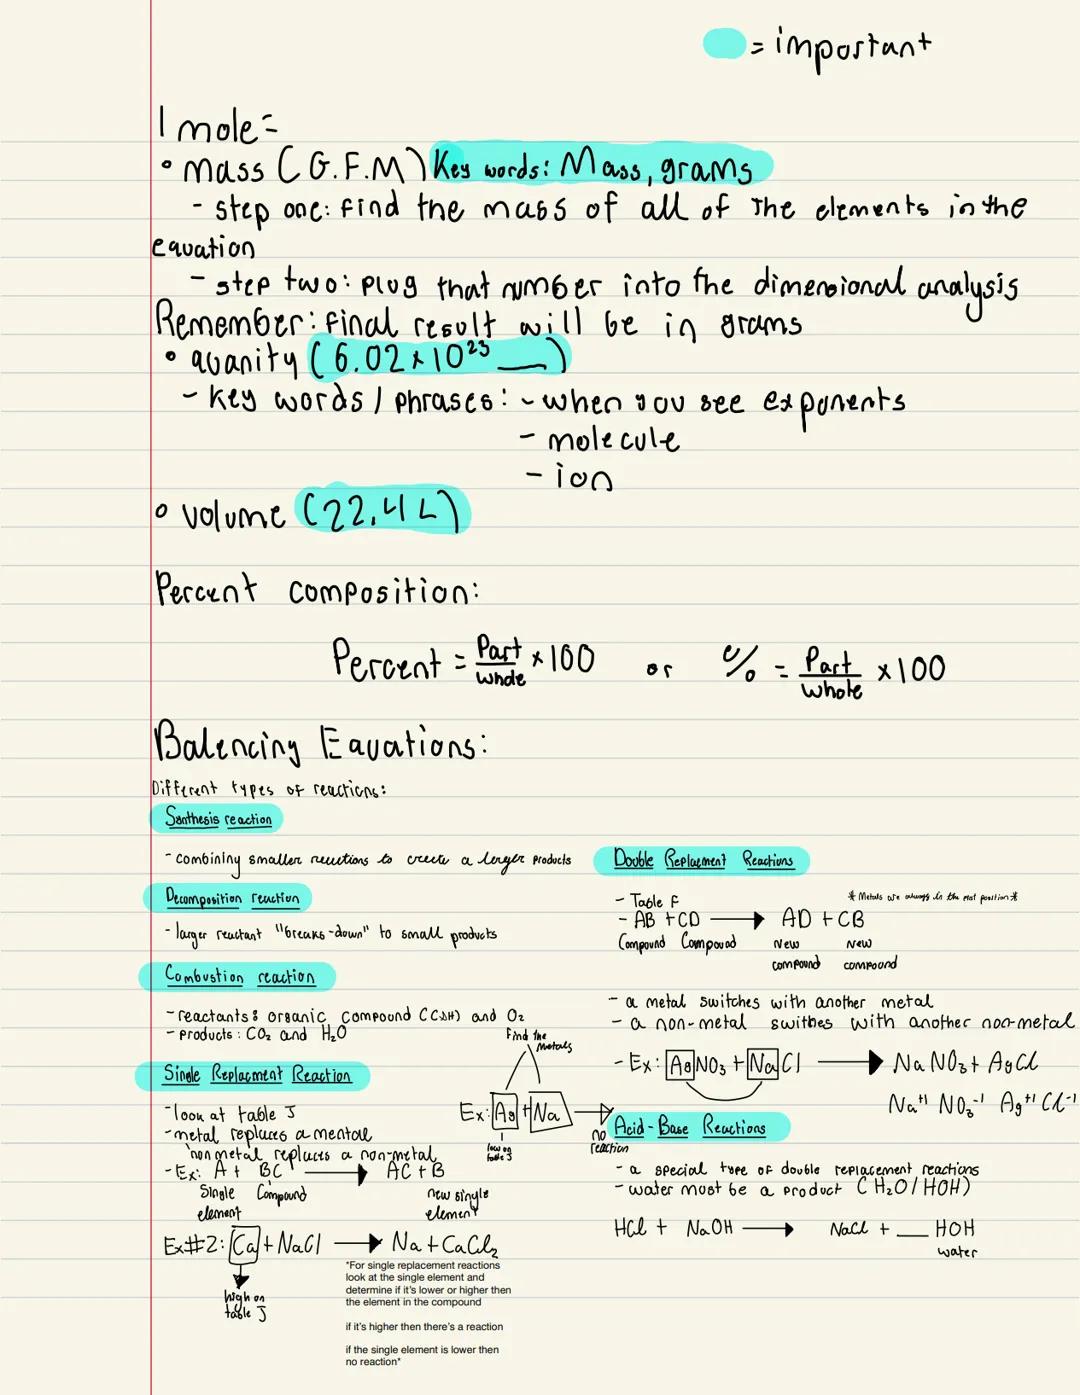 = important
1 mole =
• mass (G.F.M) Key words: Mass, grams
- step one: find the mass of all of the elements in the
equation
- step two: plug that number into the dimensional analysis
Remember: final result will be in grams
• quanity (6.02 x 10²³ __)
- key words / phrases: - when you see exponents
- molecule
- ion
• volume (22.4 L)
Percent composition:
Percent = Part/whole x 100 or % = Part/whole x 100
Balencing Equations:
Different types of reactions:
Santhesis reaction
- combining smaller reactions to create a larger products
Decomposition reaction
- larger reactant "breaks-down" to small products
Combustion reaction
- reactants: organic compound (C&H) and O₂
- products: CO₂ and H₂O
Single Replacment Reaction
- look at table J
- metal replaces a mentall
non metal replaces a non-metal
- Ex: A + BC → AC + B
Single element Compound new single element
Find the metals
Ex: Ag + Na → no reaction
low on table J
Ex#2: Ca + NaCl → Na + CaCl₂
high on
table J
*For single replacement reactions
look at the single element and
determine if it's lower or higher then
the element in the compound
if it's higher then there's a reaction
if the single element is lower then
no reaction*
Double Replacment Reactions
- Table F
* Metals are always in the first position *
- AB + CD → AD + CB
Compound Compound New New
compound compound
- a metal switches with another metal
- a non-metal swithes with another non-metal
- Ex: AgNO₃ + NaCl → NaNO₃ + AgCl
Na⁺¹ NO₃⁻¹ Ag⁺¹ Cl⁻¹
Acid-Base Reactions
- a special type of double replacement reactions
- water must be a product (H₂O/HOH)
HCl + NaOH → NaCl + __ HOH
water